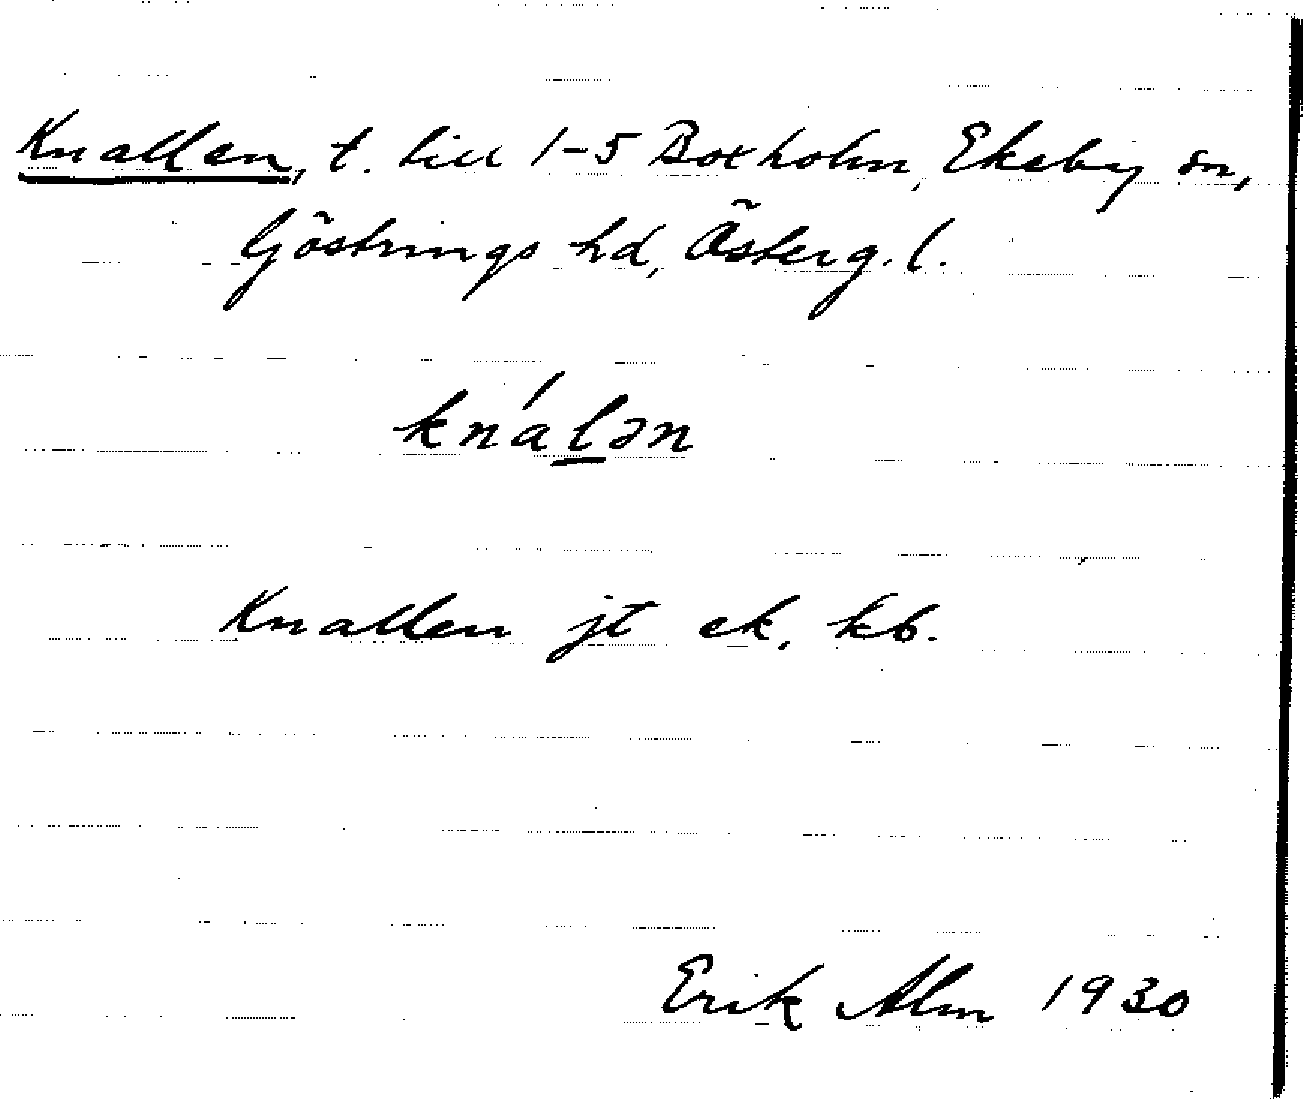 Knallen, t. till 1-5 Boxholm, Ekeby sn,
Göstrings hd, Österg. l.
knálən
Knallen jt ek, kb.
Erik Alm 1930